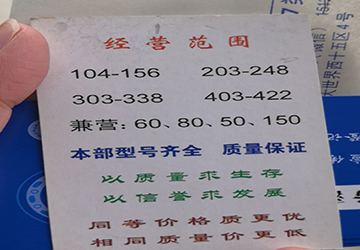 经营范围
104-156 203-248
303-338 403-422
兼营:60、80、50、150
本部型号齐全 质量保证
以质量求生存
以信誉求发展
同等价格质更优
相同质量价更低
大世界西十五区4号